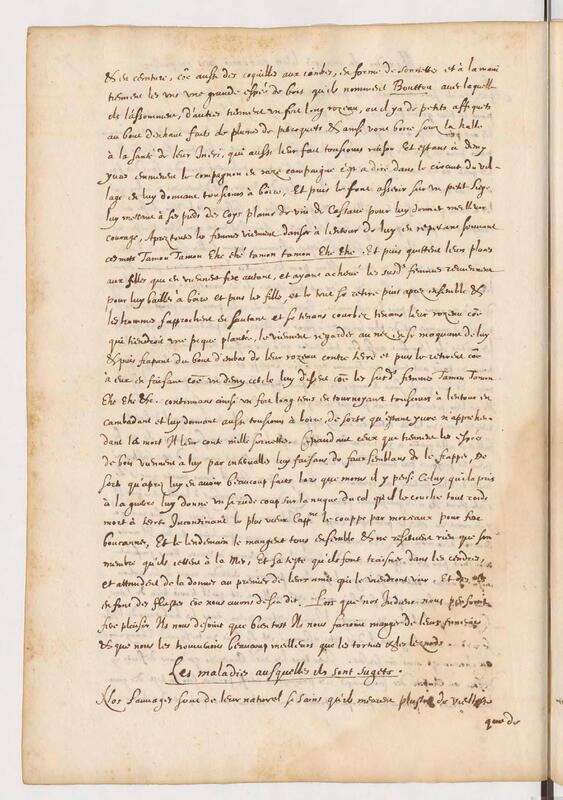 & en ceinture, cõe aussi des coquilles aux iambes, en forme de sonnettes et à la main
tiennent les uns une grande espée de bois qu'ils nomment Boutton avec laquelle
ils l'assomment, d'autres tiennent un fort long rozeau, ou il y a de petits affiquets
au bout d'enhaut faits de plume de perroquets & ainsi vont boire sous la halle
à la santé de leur Ineri, qui aussi leur fait tousiours raison Et estans à demy
yvres emmenent le compagnon en raze campaigne c'est a dire dans le circuit du vil-
lage en luy donnant tousiours à boire, Et puis le font asseoir sur un petit siege
luy mettant à ses pieds des Coys plains de vin de Cassave pour luy donner meilleur
courage, Apres toutes les femmes viennent danser à l'entour de luy en repetant souvent
ces mots Tamon Tamon Ehe ehé tamon tamon Ehe Ehe. Et puis quittent leur place
aux filles qui en viennent faire autant, et ayant achevé les susd. femmes reviennent
pour luy bailler à boire et puis les filles, et le tout se retire puis apres ensemble &
les hommes s'approchent en sautant et se tenans courbez tenans leur rozeau cõe
qui tiendroit une picque plantée, le viennent regarder au nez en se moquant de luy
& puis frapant du bout d'embas de leur rozeau contre terre et puis le retirent
à eux en faisant cõe un demy cercle luy disent cõe les susd. femmes Tamon Tamon
Ehe Ehe &c. continuans ainsi un fort long tems en tournoyant tousiours à l'entour en
cambadant et luy donnant aussi tousiours à boire, de sorte qu'estant yvre n'apprehen-
dant la mort Il leur conte mille sornettes. Cependant ceux qui tiennent les espées
de bois viennent à luy par intervalles luy faisans de faux semblans de le frapper, De
sorte qu'apres luy en avoir beaucoup faits lors que moins il y pense Celuy qui l'a pris
à la guerre luy donne un si rude coup sur la nuque du col qu'il le couche tout roide
mort à terre Incontinant le plus vieux Capp.ne le couppe par morceaux pour faire
boucanner, Et le lendemain le mangent tous ensemble & ne restituent rien que son
membre qu'ils jettent à la Mer, Et sa teste qu'ils font traisner dans les cendres,
et attendent de la donner au premier de leurs amis qui le viendront voir, Et des os
en font des flustes cõe nous avons desia dit. Lors que nos Indiens nous pensoient
faire plaisir Ils nous disoient que bien tost Ils nous feroient manger de leurs ennemis
& que nous les trouverions beaucoup meilleurs que les tortues & les lezards.
Les maladies ausquelles ils sont sugets.
Nos Sauvages sont de leur naturel si sains qu'ils meurent plustost de vieillesse
que de